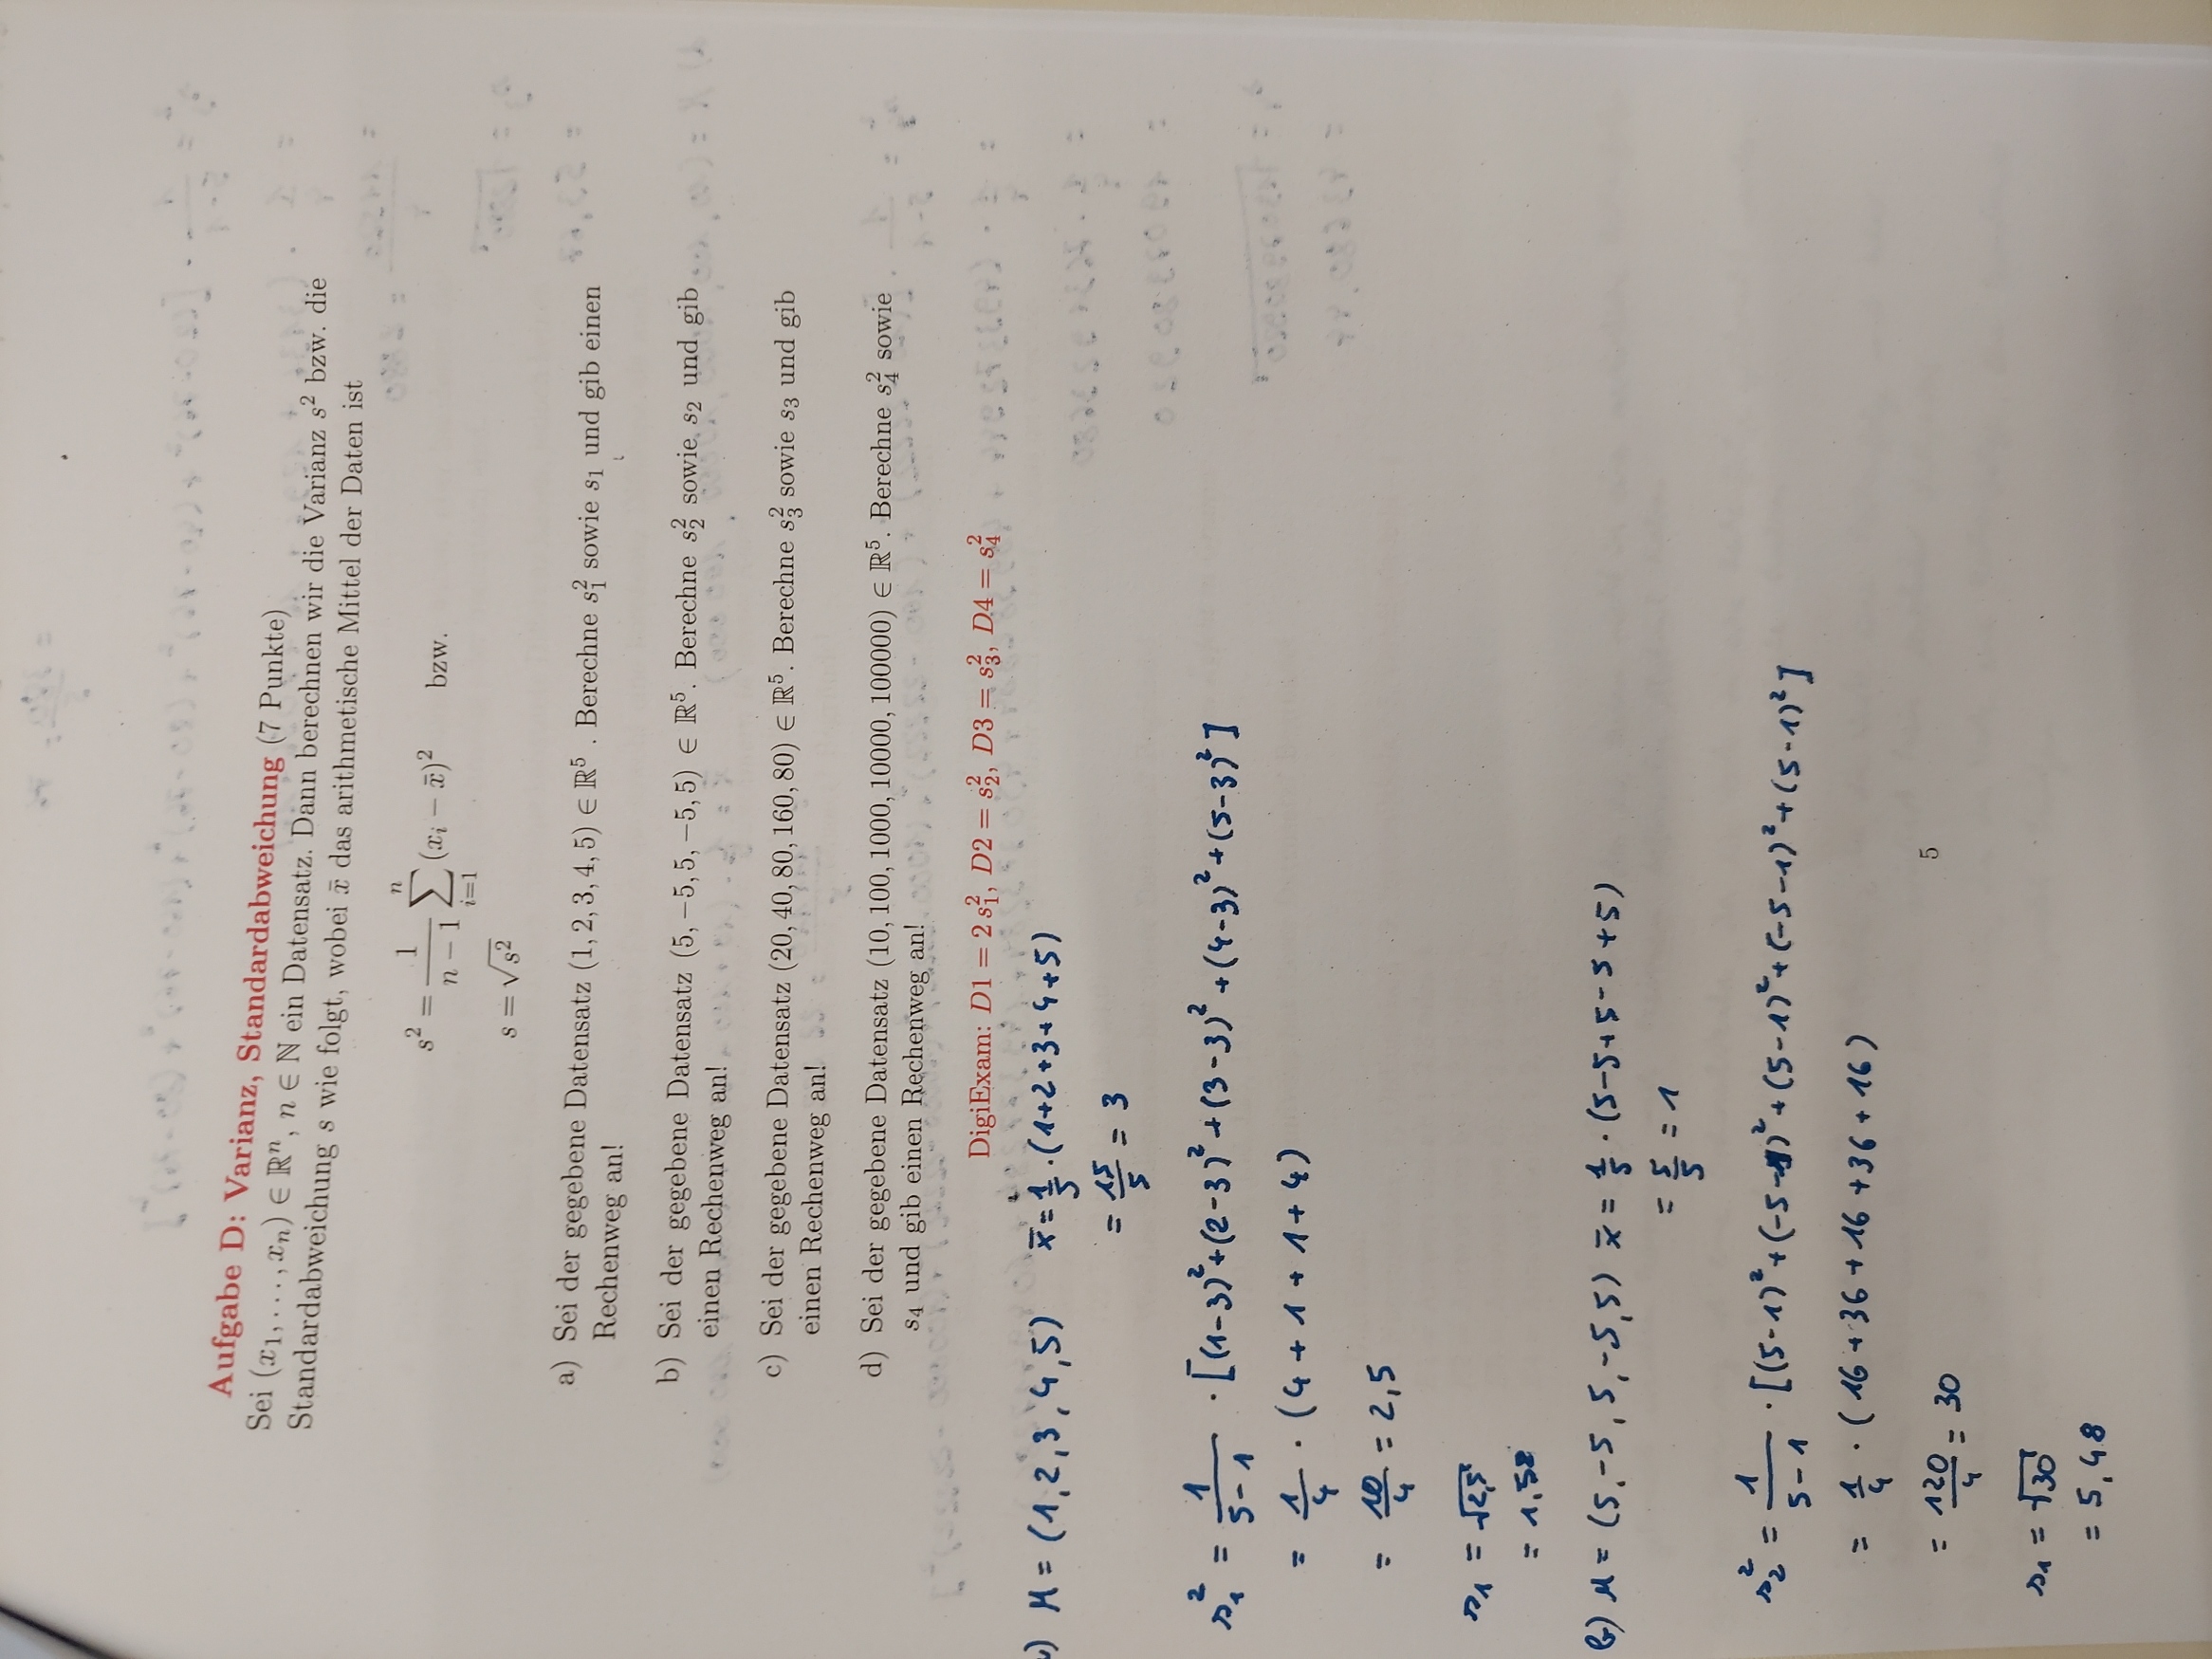 Aufgabe D: Varianz, Standardabweichung (7 Punkte)
Sei (x₁, . . . , xₙ) ∈ ℝⁿ, n ∈ ℕ ein Datensatz. Dann berechnen wir die Varianz s² bzw. die
Standardabweichung s wie folgt, wobei x̄ das arithmetische Mittel der Daten ist
s² = 1/(n − 1) ∑ᵢ₌₁ⁿ (xᵢ − x̄)² bzw.
s = √s²
a) Sei der gegebene Datensatz (1, 2, 3, 4, 5) ∈ ℝ⁵ . Berechne s₁² sowie s₁ und gib einen
Rechenweg an!
b) Sei der gegebene Datensatz (5, −5, 5, −5, 5) ∈ ℝ⁵. Berechne s₂² sowie s₂ und gib
einen Rechenweg an!
c) Sei der gegebene Datensatz (20, 40, 80, 160, 80) ∈ ℝ⁵. Berechne s₃² sowie s₃ und gib
einen Rechenweg an!
d) Sei der gegebene Datensatz (10, 100, 1000, 10000, 100000) ∈ ℝ⁵. Berechne s₄² sowie
s₄ und gib einen Rechenweg an!
DigiExam: D1 = 2 s₁², D2 = s₂², D3 = s₃², D4 = s₄²
) M = (1,2,3,4,5) x̄ = 1/5 · (1+2+3+4+5)
= 15/5 = 3
s₁² = 1/(5-1) · [(1-3)²+(2-3)²+(3-3)²+(4-3)²+(5-3)²]
= 1/4 · (4+1+1+4)
= 10/4 = 2,5
s₁ = √2,5
= 1,58
b) M = (5,-5,5,-5,5) x̄ = 1/5 · (5-5+5-5+5)
= 5/5 = 1
s₂² = 1/(5-1) · [(5-1)²+(-5-1)²+(5-1)²+(-5-1)²+(5-1)²]
= 1/4 · (16+36+16+36+16)
= 120/4 = 30
5
s₁ = √30
= 5,48